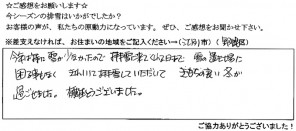 ☆ご感想をお願いします☆
今シーズンの排雪はいかがでしたか?
お客様の声が、私たちの原動力になっています。ぜひ、ご感想をお聞かせ下さい。
※差支えなければ、お住まいの地域をご記入ください→(江別市)(
今年は特に雪が少なかったので 排雪に来てくれるまで 雪の置き場に
困る事もなく きれいに排雪していただいて
過ごせました。 有難うございました。
ご協力ありがとうございました!